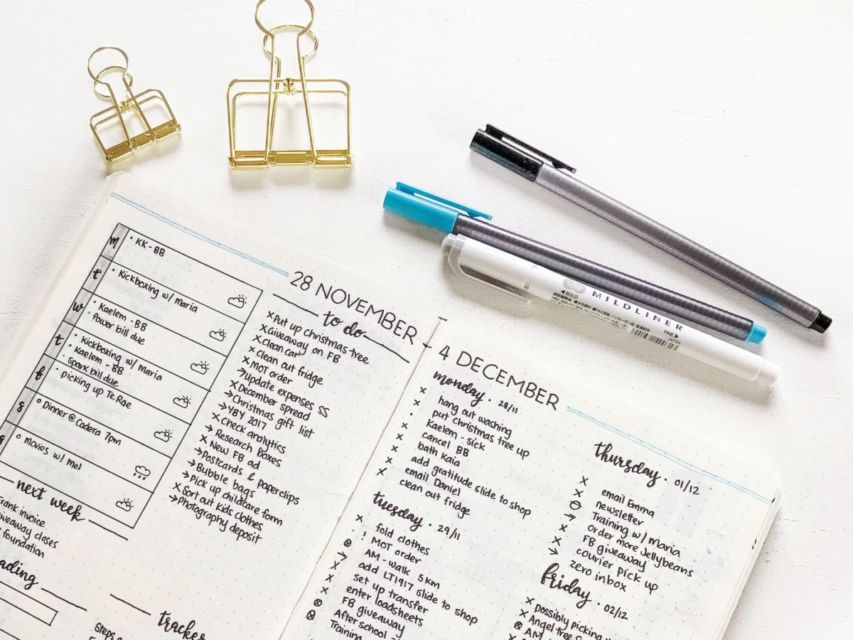 MILDLINER
28 NOVEMBER
4 DECEMBER
m
• KK - BB
t
• Kickboxing w/ maria
w
• Kaelem - BB
• Power bill due
t
• Kickboxing w/ maria
• Kaelem - BB
f
• Spark bill due
• picking up Te Rae
s
• Dinner @ Cadera 7pm
s
• movies w/ mel
to do
× Put up christmas tree
× Giveaway on FB
× Clean car
× Clean out fridge
× MOT order
→ Update expenses SS
× December spread
→ Christmas gift list
→ YBY 2017
× Check analytics
→ Research Boxes
× New FB ad
→ Postcards & paperclips
→ Bubble bags
× Pick up childcare form
× Sort out kids clothes
→ Photography deposit
next week
invoice
closes
foundation
tracker
Steps
monday • 28/11
× hang out washing
× put christmas tree up
× Kaelem - sick
× cancel BB
× bath Kaia
× add gratitude slide to shop
× email Daniel
clean out fridge
tuesday • 29/11
× fold clothes
! MOT order
AM - walk 5km
→ add LT1917 slide to shop
× set up transfer
× enter loadsheets
FB giveaway
After school
Training
thursday • 01/12
× email Emma
newsletter
Training w/ Maria
→ order more Jellybeans
× FB giveaway
× courier pick up
→ zero inbox
friday • 02/12
× possibly picking
× Angel tree
AM